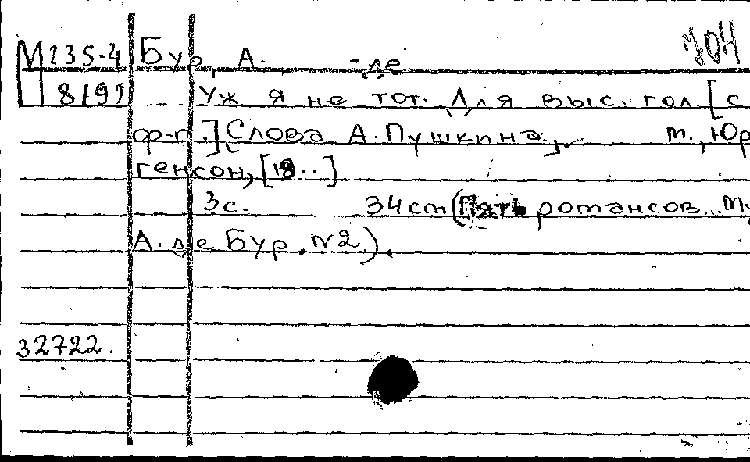 704
М 235-4 Бур, А. -де
8(9) Уж я не тот. Для выс. гол [с
ф-п.] (Слова А. Пушкина). М., Юр
генсон, [18..]
3с. 34см (Пять романсов. Му
А. де Бур. №2).
32722.